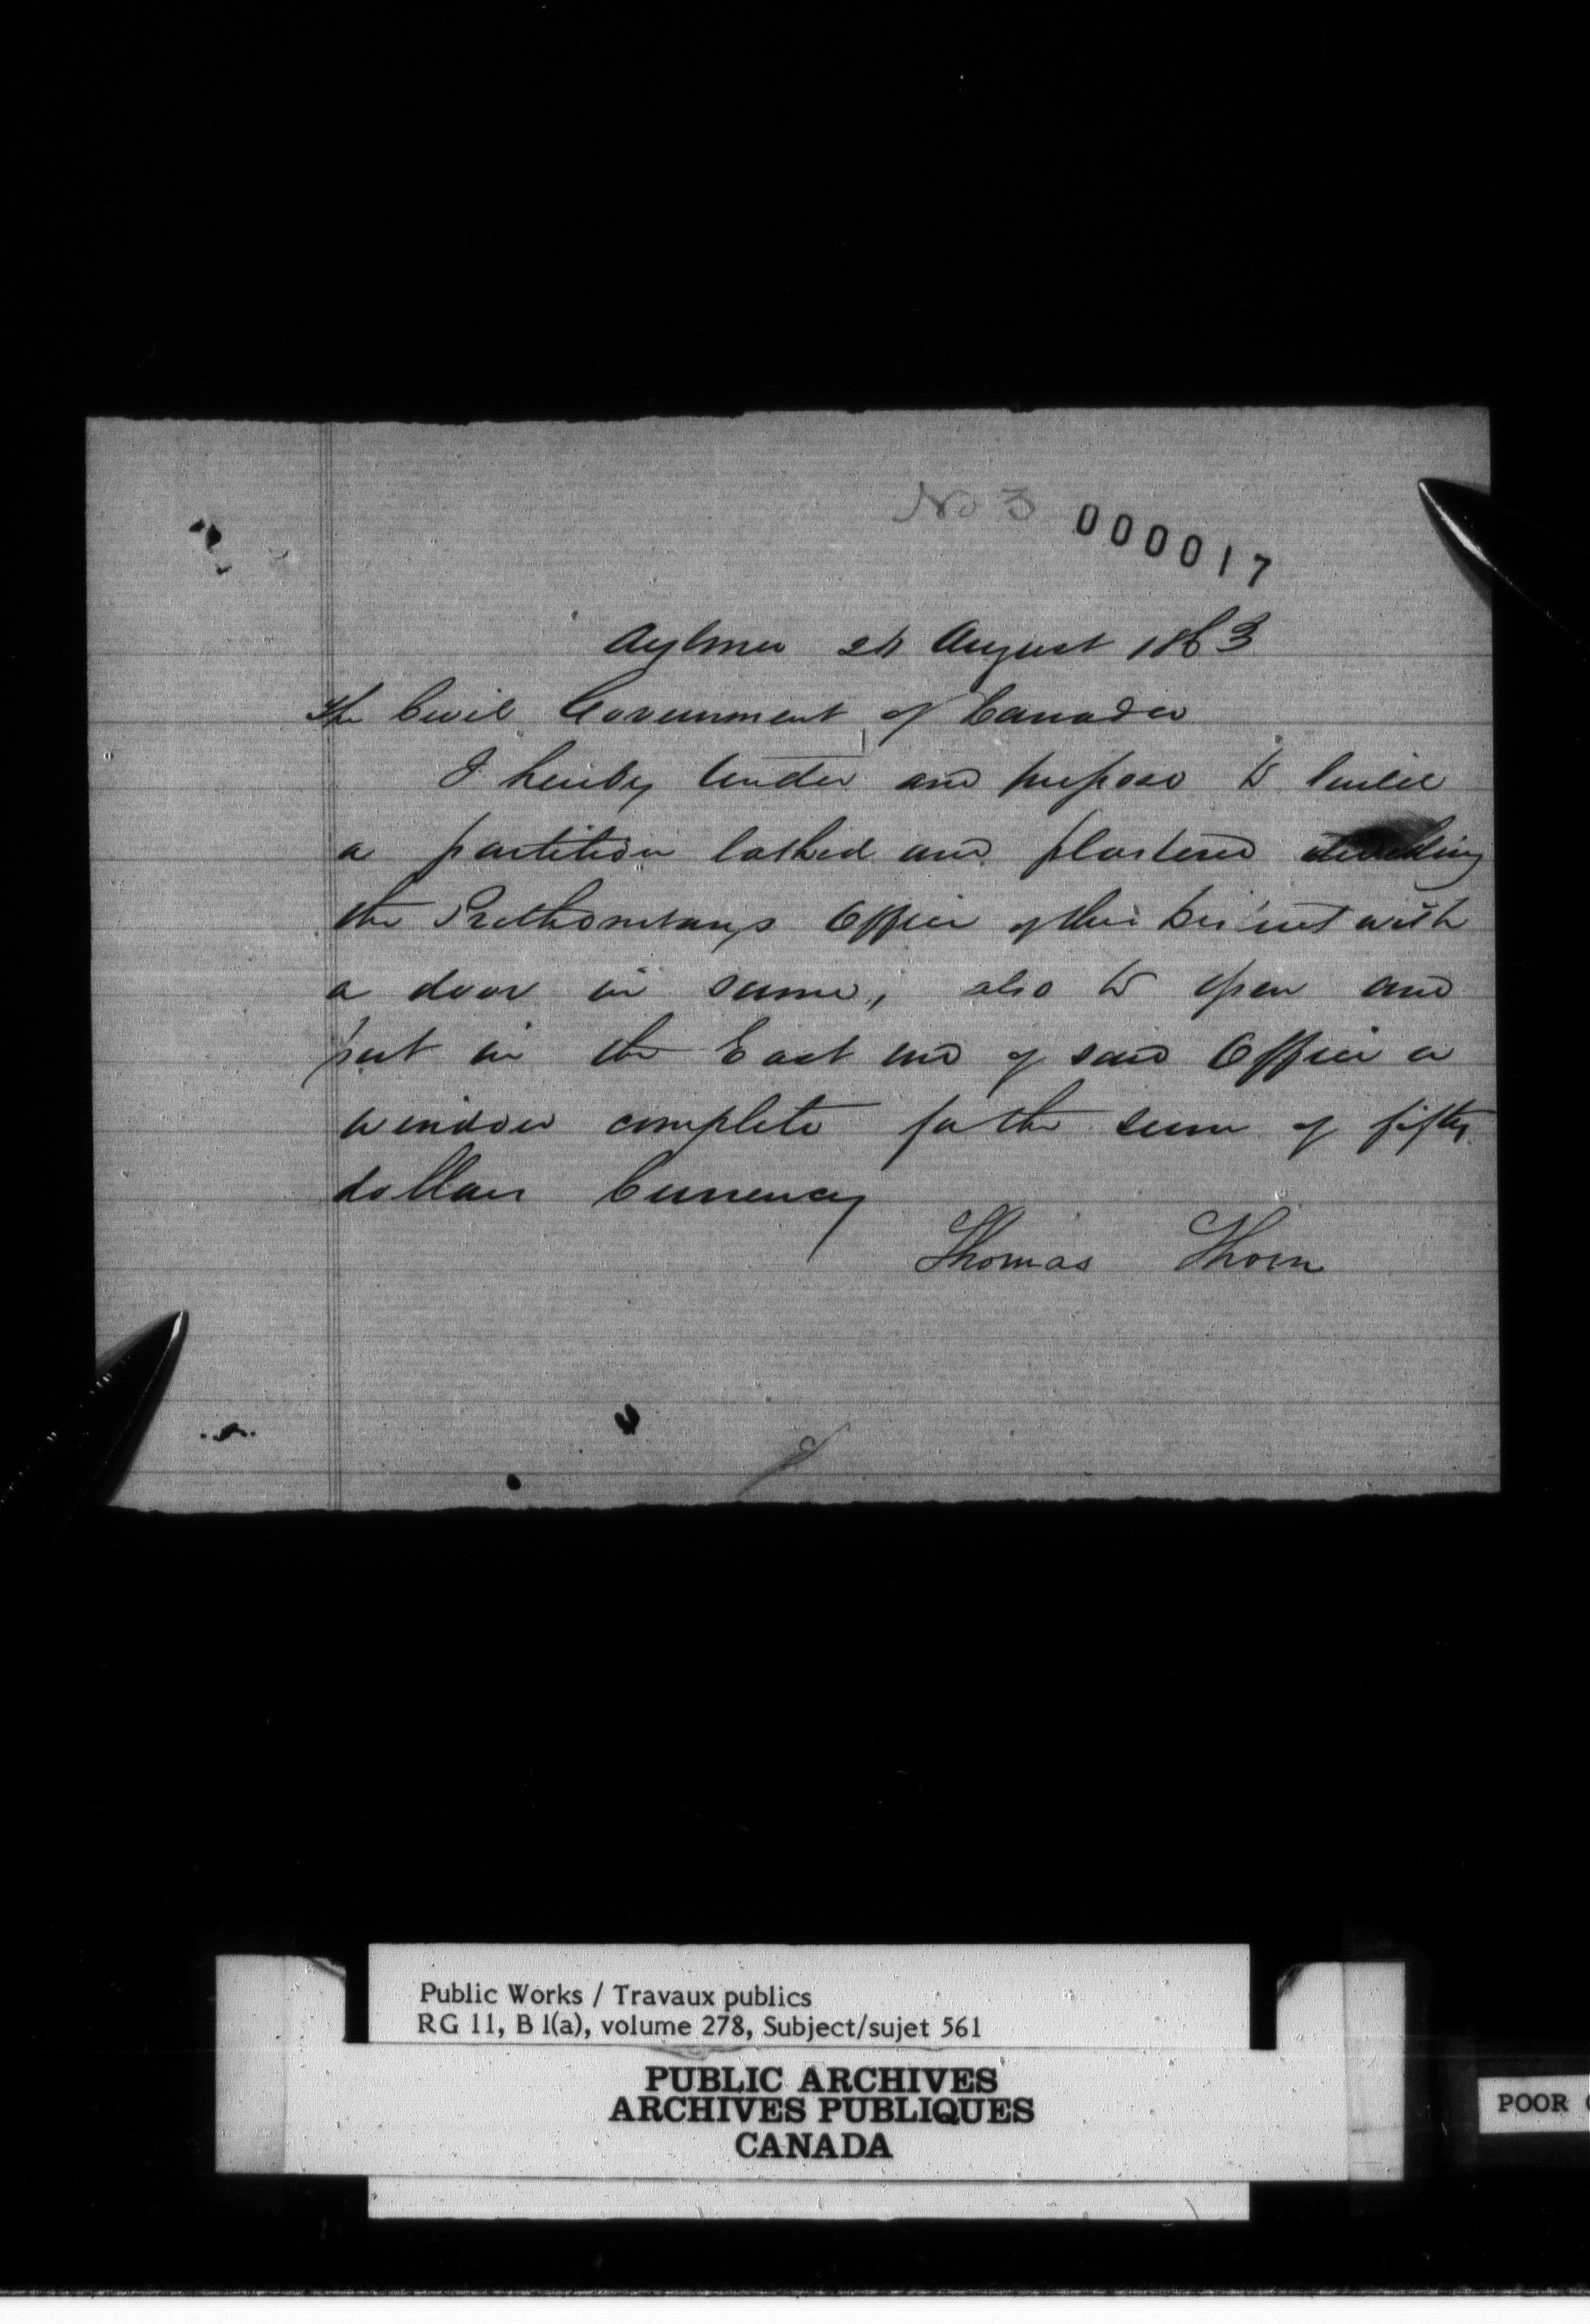 No 3 000017
Aylmer 21 August 1863
The Civil Government of Canada
I hereby tender and propose to build
a partition lathed and plastered dividing
the Prothonotarys Office of this District with
a door in same, also to open and
put in the East end of said Office a
window complete for the sum of fifty
dollars Currency
Thomas Thorn
Public Works / Travaux publics
RG 11, B 1(a), volume 278, Subject/sujet 561
PUBLIC ARCHIVES
ARCHIVES PUBLIQUES
CANADA
POOR